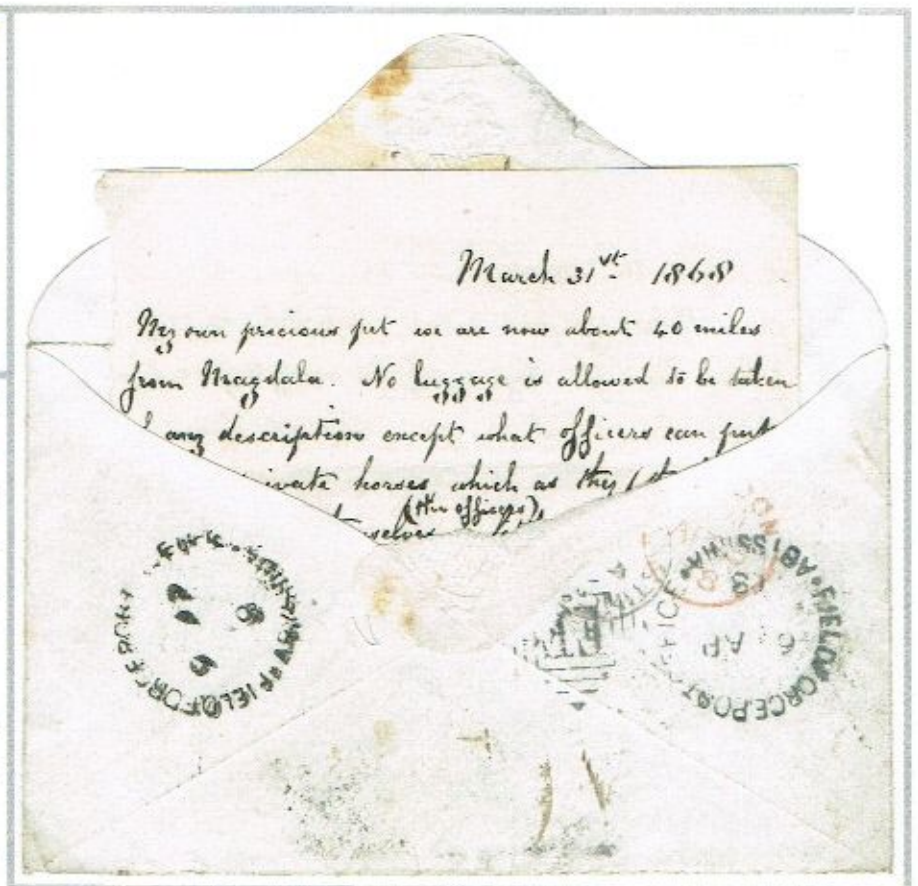 March 31st 1868
My own precious pet we are now about 40 miles
from Magdala. No luggage is allowed to be taken
any description except what officers can put
private horses which as they
(the officers)
selves
FIELD FORCE POST
FIELD FORCE POST OFFICE ABISSINHA
6 AP